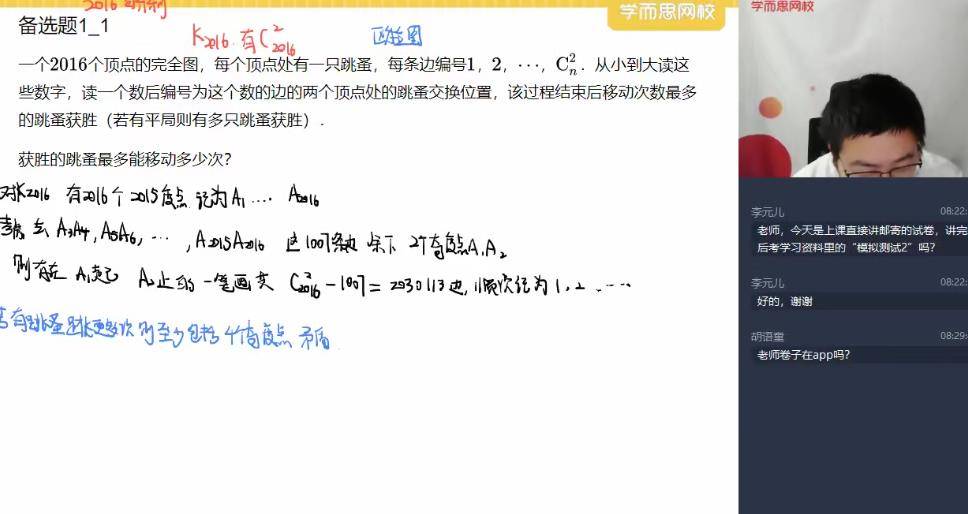 学而思网校
备选题1_1
K2016 有C²2016
一个2016个顶点的完全图，每个顶点处有一只跳蚤，每条边编号1，2，⋯，C²ₙ．从小到大读这
些数字，读一个数后编号为这个数的边的两个顶点处的跳蚤交换位置，该过程结束后移动次数最多
的跳蚤获胜（若有平局则有多只跳蚤获胜）．
获胜的跳蚤最多能移动多少次？
对K2016 有2016个2015度点 记为A₁ ⋯ A2016
去 A₃A₄, A₅A₆, ⋯, A2015A2016 这1007条边 余下 2个奇度点A₁A₂
则存在 A₁ A₂ 止的一笔画 C²2016−1007=2030113边, 顺次记为1, 2 ⋯
若有跳蚤跳更多次 则至少包括4个奇度点 矛盾
学而思网校
李元儿 08:22:
老师，今天是上课直接讲邮寄的试卷，讲完
后考学习资料里的“模拟测试2”吗？
李元儿 08:22:
好的，谢谢
胡语童 08:29:
老师卷子在app吗?